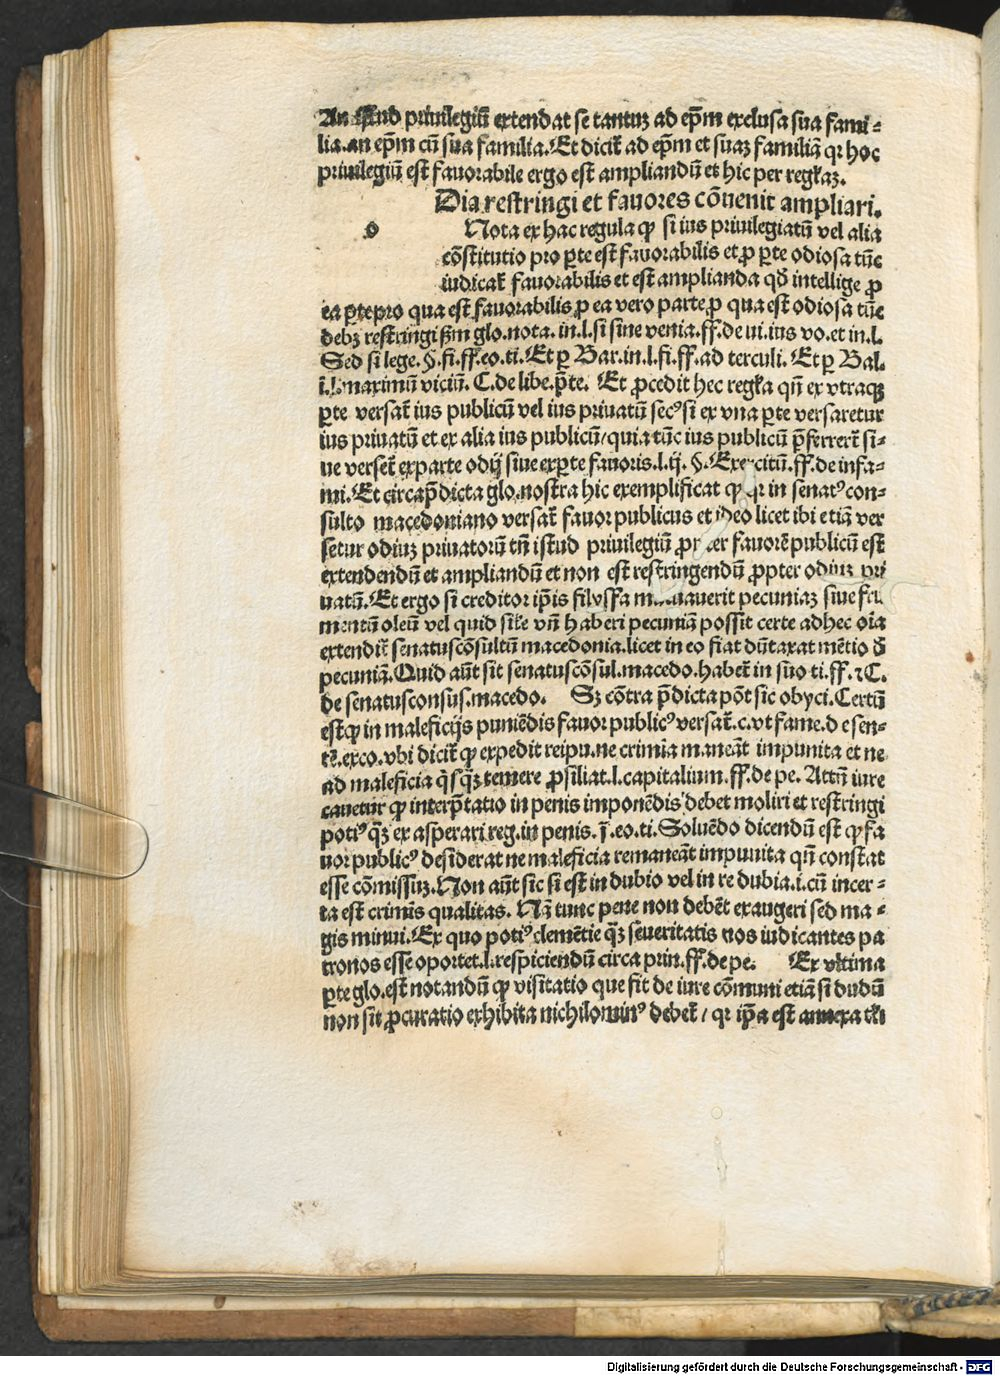 An istud priuilegiū extendat se tantuꝫ ad ep̄m exclusa sua fami⸗
lia. an ep̄m cū sua familia. Et dicit̄ ad ep̄m et suaꝫ familiā qꝛ hoc
priuilegiū est fauorabile ergo est ampliandū et hic per regl̄aꝫ.
Odia restringi et fauores cōuenit ampliari.
Nota ex hac regula ꝙ si ius priuilegiatū vel alia
cōstitutio pro ꝑte est fauorabilis et ꝓ ꝑte odiosa tūc
iudicat̄ fauorabilis et est amplianda qđ intellige ꝓ
ea ꝑte pro qua est fauorabilis ꝓ ea vero parte ꝓ qua est odiosa tūc
debꝫ restringi ẜm glo. nota. in. l. si sine venia. ff. de ui. ius vo. et in. l.
Sed si lege. §. fi. ff. eo. ti. Et ꝑ Bar. in. l. fi. ff. ad terculi. Et ꝑ Bal.
ī. l. maximū viciū. C. de libe. p̄te. Et ꝓcedit hec regl̄a qn̄ ex vtraqꝫ
ꝑte versat̄ ius publicū vel ius priuatū secꝰ si ex vna ꝑte versaretur
ius priuatū et ex alia ius publicū / quia tūc ius publicū p̄ferret̄ si⸗
ue verset̄ ex parte odij siue ex ꝑte fauoris. l. ij. §. Exercitū. ff. de infa⸗
mi. Et circa p̄dicta glo. nostra hic exemplificat ꝙ qꝛ in senatꝰ con⸗
sulto macedoniano versat̄ fauor publicus et ideo licet ibi etiā ver
setur odiuꝫ priuatorū tn̄ istud priuilegiū ꝓpter fauorē publicū est
extendendū et ampliandū et non est restringendū ꝓpter odiuꝫ pri
uatū. Et ergo si creditor ip̄is filijsfa mutuauerit pecuniaꝫ siue fru
mentū oleū vel quid sil̄e vn̄ haberi pecuniā possit certe adhec oīa
extendit̄ senatuscōsultū macedonia. licet in eo fiat dūtaxat mētio đ
pecuniā. Quid aūt sit senatuscōsul. macedo. habet̄ in suo ti. ff. ⁊ C.
de senatusconsus. macedo. Sꝫ cōtra p̄dicta pōt sic obyci. Certū
est ꝙ in maleficijs puniēdis fauor publicꝰ versat̄. c. vt fame. de sen⸗
tē. exco. vbi dicit̄ ꝙ expedit reipu. ne crimīa maneāt impunita et ne
ad maleficia q̄sq̄ꝫ temere ꝓsiliat. l. capitalium. ff. de pe. Attn̄ iure
cauetur ꝙ interp̄tatio in penis imponēdis debet moliri et restringi
potiꝰ q̄ꝫ ex asperari reg. in penis. ī. eo. ti. Soluēdo dicendū est ꝙ fa
uor publicꝰ desiderat ne maleficia remaneāt impunita qn̄ constat
esse cōmissuꝫ. Non aūt sic si est in dubio vel in re dubia. i. cū incer⸗
ta est crimīs qualitas. Nā tunc pene non debēt exaugeri sed ma⸗
gis minui. Ex quo potiꝰ clemētie q̄ꝫ seueritatis nos iudicantes pa
tronos esse oportet. l. respiciendū circa prin. ff. de pe. Ex vltima
ꝑte glo. est notandū ꝙ visitatio que fit de iure cōmuni etiā si dudū
non sit ꝓcuratio exhibita nichilominꝰ debet̄ / qꝛ ip̄a est annexa tl̄i
Digitalisierung gefördert durch die Deutsche Forschungsgemeinschaft - DFG